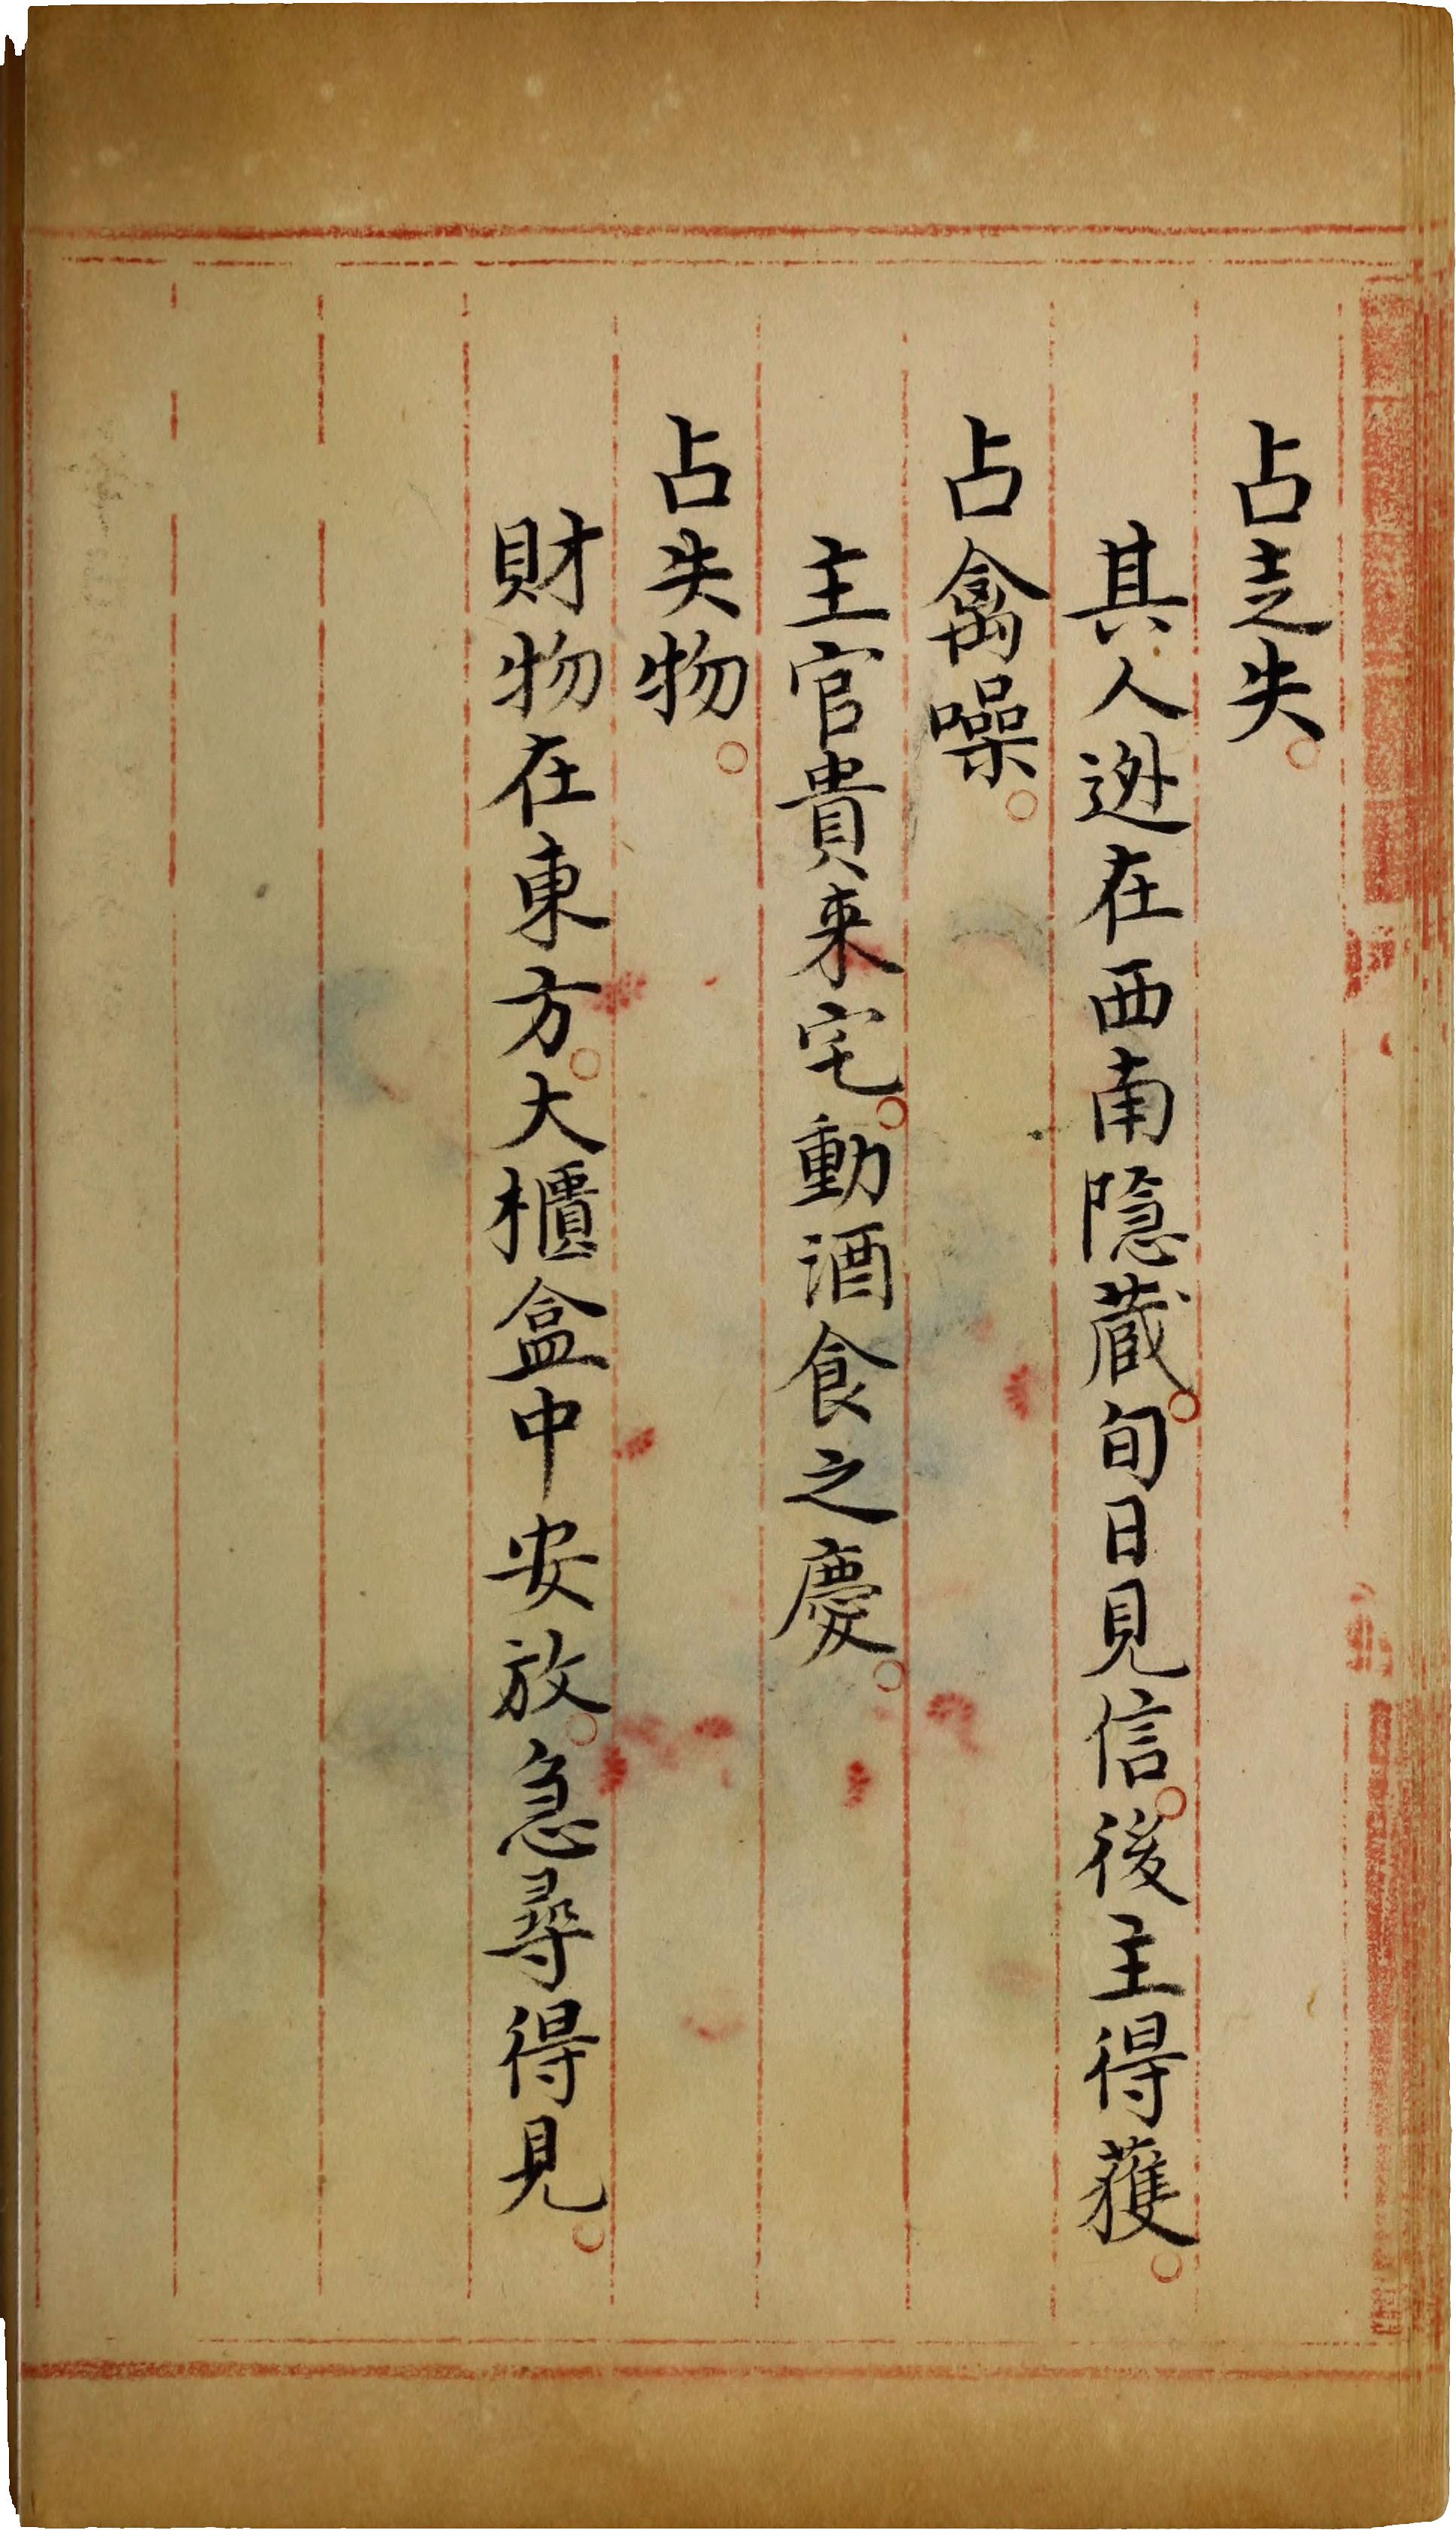 占走失。
其人迯在西南隱蔵。旬日見信。後主得獲。
占禽噪。
主官貴来宅。動酒食之慶。
占失物。
財物在東方。大櫃盒中安放。急尋得見。